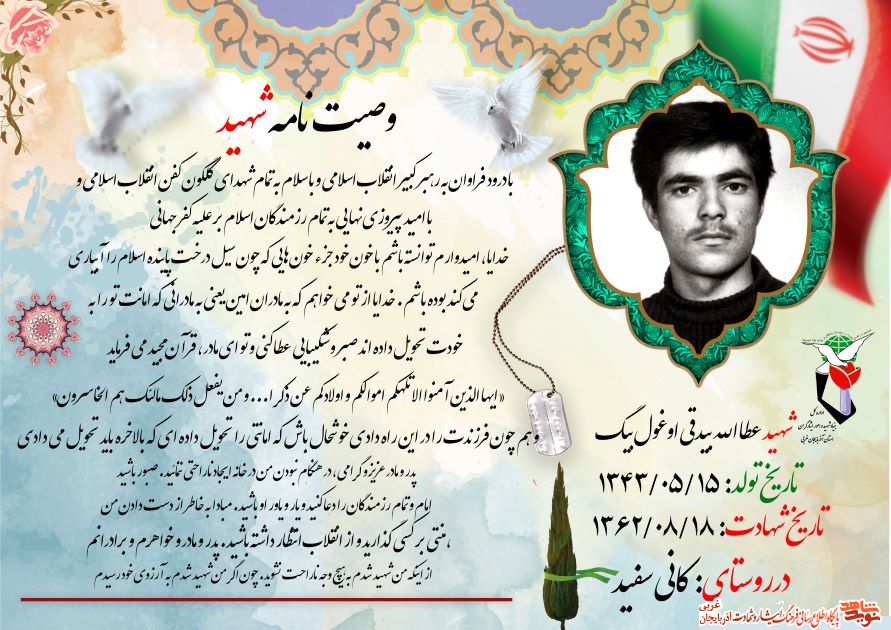 وصیت نامه شهید
بادرود فراوان به رهبر کبیر انقلاب اسلامی و باسلام به تمام شهدای گلگون کفن انقلاب اسلامی و
با امید پیروزی نهایی به تمام رزمندگان اسلام بر علیه کفر جهانی
خدایا، امیدوارم توانسته باشم با خون خود جزء خون هایی که چون سیل درخت پاینده اسلام را آبیاری
می کند بوده باشم . خدایا از تو می خواهم که به مادران امین یعنی به مادرانی که امانت تو را به
خودت تحویل داده اند صبر و شکیبایی عطا کنی و تو ای مادر، قرآن مجید می فرماید
«ایها الذین آمنوا لا تلهکم اموالکم و اولادکم عن ذکر ا... و من یفعل ذلک مالنک هم الخاسرون»
وهم چون فرزندت را در این راه دادی خوشحال باش که امانتی را تحویل داده ای که بالاخره باید تحویل می دادی
پدر و مادر عزیز و گرامی، در هنگام نبودن من در خانه ایجاد ناراحتی نمائید. صبور باشید
امام و تمام رزمندگان را دعا کنید و یار و یاور او باشید. مبادا به خاطر از دست دادن من
،منتی بر کسی گذارید و از انقلاب انتظار داشته باشید. پدر و مادر و خواهرم و برادرانم
از اینکه من شهید شدم به هیچ وجه ناراحت نشوید. چون اگر من شهید شدم به آرزوی خود رسیدم
شهید عطاالله بیدقی اوغول بیگ
تاریخ تولد: ۱۳۴۳/۰۵/۱۵
تاریخ شهادت: ۱۳۶۲/۰۸/۱۸
در روستای: کانی سفید
اداره کل
بنیاد شهید و امور ایثارگران
استان آذربایجان غربی
نوید شاهد پایگاه اطلاع رسانی فرهنگ ایثار و شهادت آذربایجان غربی